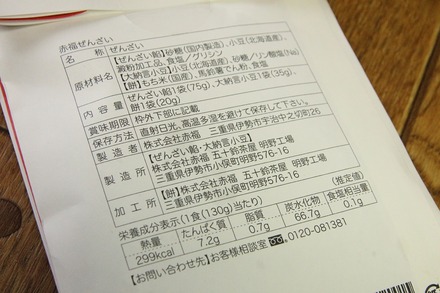 赤福ぜんざい
名　　称　ぜんざい
原材料名　【ぜんざい餡】砂糖(国内製造)、小豆(北海道産)、
澱粉加工品、食塩/グリシン
【大納言小豆】小豆(北海道産)、砂糖/リン酸塩(Na)
【餅】もち米(国産)、馬鈴薯でん粉、食塩
内 容 量　ぜんざい餡1袋(75g)、大納言小豆1袋(35g)、
餅1袋(20g)
賞味期限　枠外下部に記載
保存方法　直射日光、高温多湿を避けて保存して下さい。
製 造 者　株式会社赤福　三重県伊勢市宇治中之切町26
製 造 所　【ぜんざい餡・大納言小豆】
株式会社赤福 五十鈴茶屋 明野工場
三重県伊勢市小俣町明野576-16
加 工 所　【餅】株式会社赤福 五十鈴茶屋 明野工場
三重県伊勢市小俣町明野576-16
栄養成分表示(1食(130g)当たり)　(推定値)
熱量　たんぱく質　脂質　炭水化物　食塩相当量
299kcal　7.2g　0.7g　66.7g　0.1g
【お問い合わせ先】お客様相談室 0120-081381